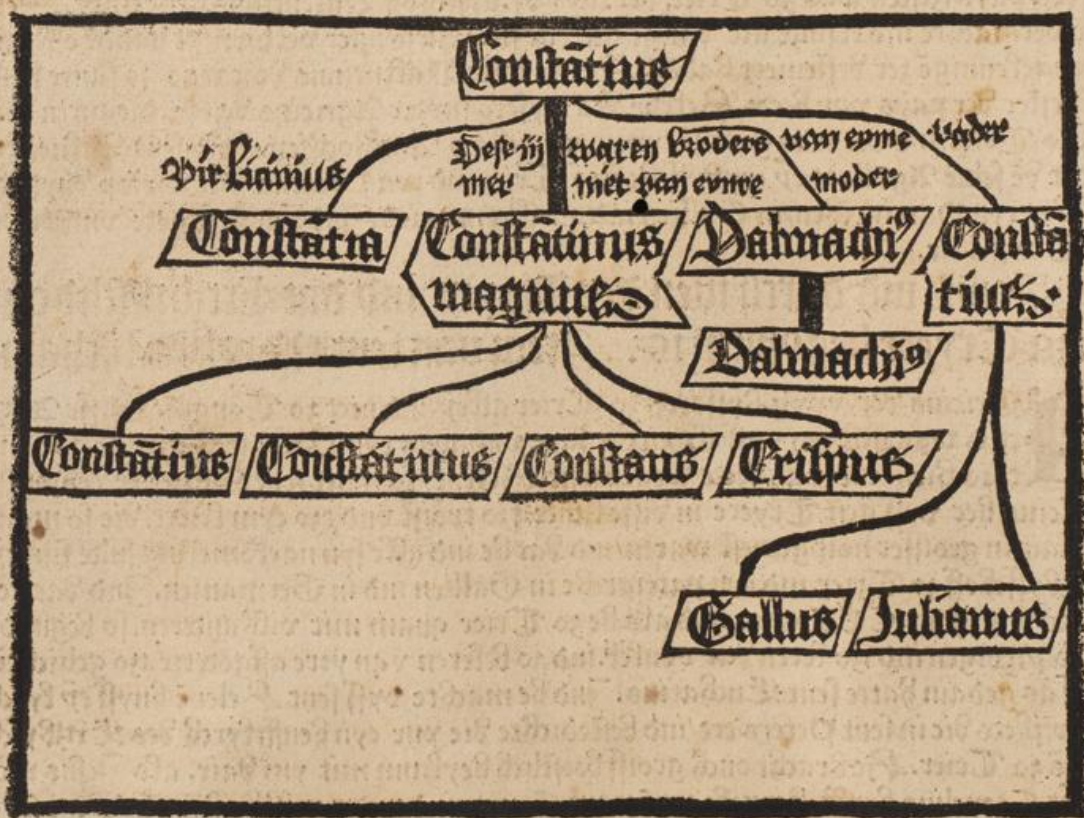 Constātius
Vir Licinius Dese iij waren broders van eyme vader
mer niet van eynre moder
Constātia Constātinus Dalmachiꝰ Constā
magnus tius.
Dalmachiꝰ
Constātius Constātinus Constans Crispus
Gallus Julianus